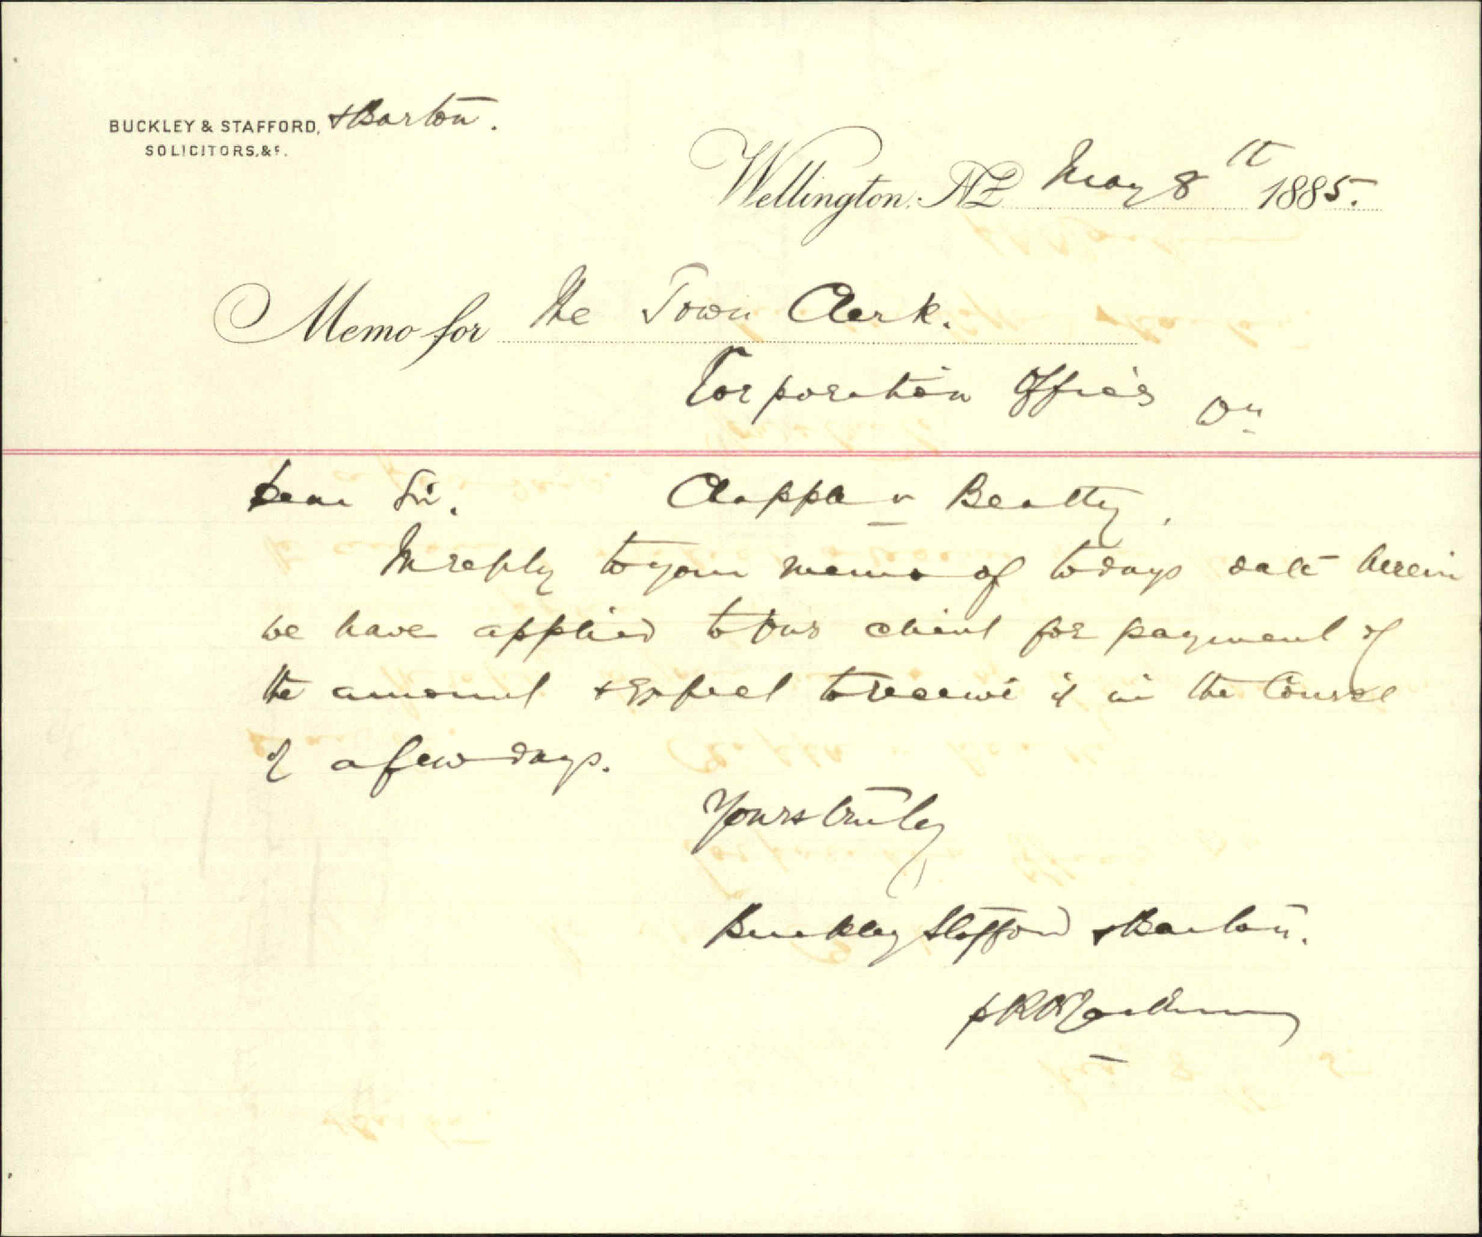 BUCKLEY & STAFFORD, & Barton.
SOLICITORS, &c.
Wellington. NZ May 8th 1885.
Memo for The Town Clerk.
Corporation Offices
Dear Sir. Clapp v Beatty,
In reply to your memo of todays date herein
we have applied to our client for payment of
the amount & expect to receive it in the course
of a few days.
Yours truly
Buckley Stafford & Barton.